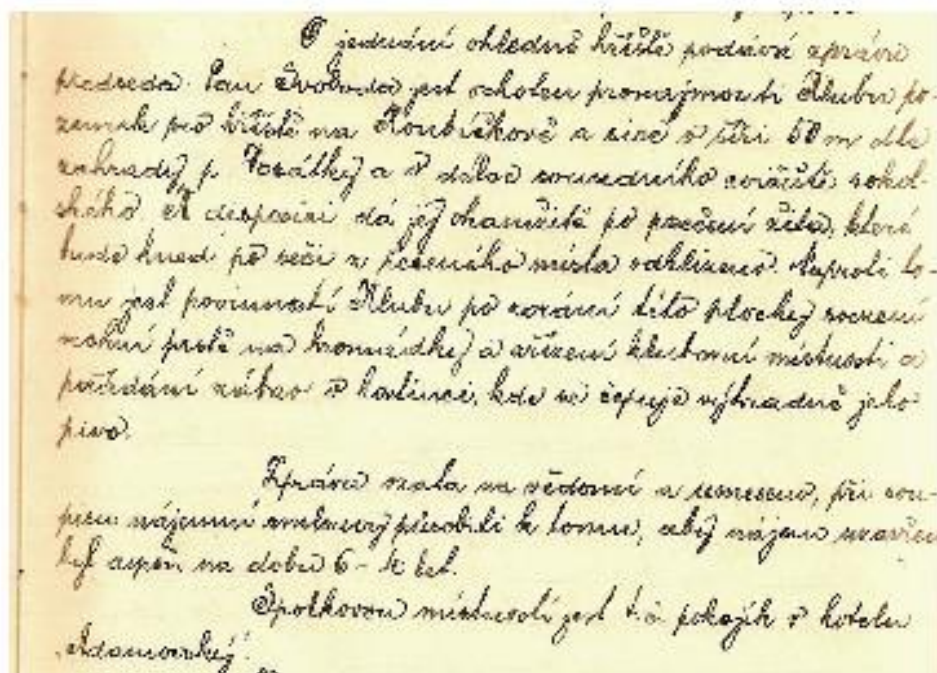 O jednání ohledně hřiště podává zprávu
předseda. Pan Svoboda jest ochoten pronajmouti Klubu po-
zemek pro hřiště na Koubíčkově a sice v šíři 50 m dle
zahrady p. a v délce sousedního cvičiště sokol-
ského. K disposici dá jej okamžitě po žita, které
bude hned po seči z místa odklizeno. Naproti to-
mu jest povinností Klubu po zorání této plochy
na hromádky a zřízení klubovní místnosti a
pořádání zábav v hostinci, kde se čepuje výhradně jeho
pivo.
Zpráva vzata na vědomí a usneseno, při sou-
pisu nájemní smlouvy působiti k tomu, aby nájem uzavřen
byl aspoň na dobu 6 - let.
Spolkovou místností jest t.č. pokojík v hotelu